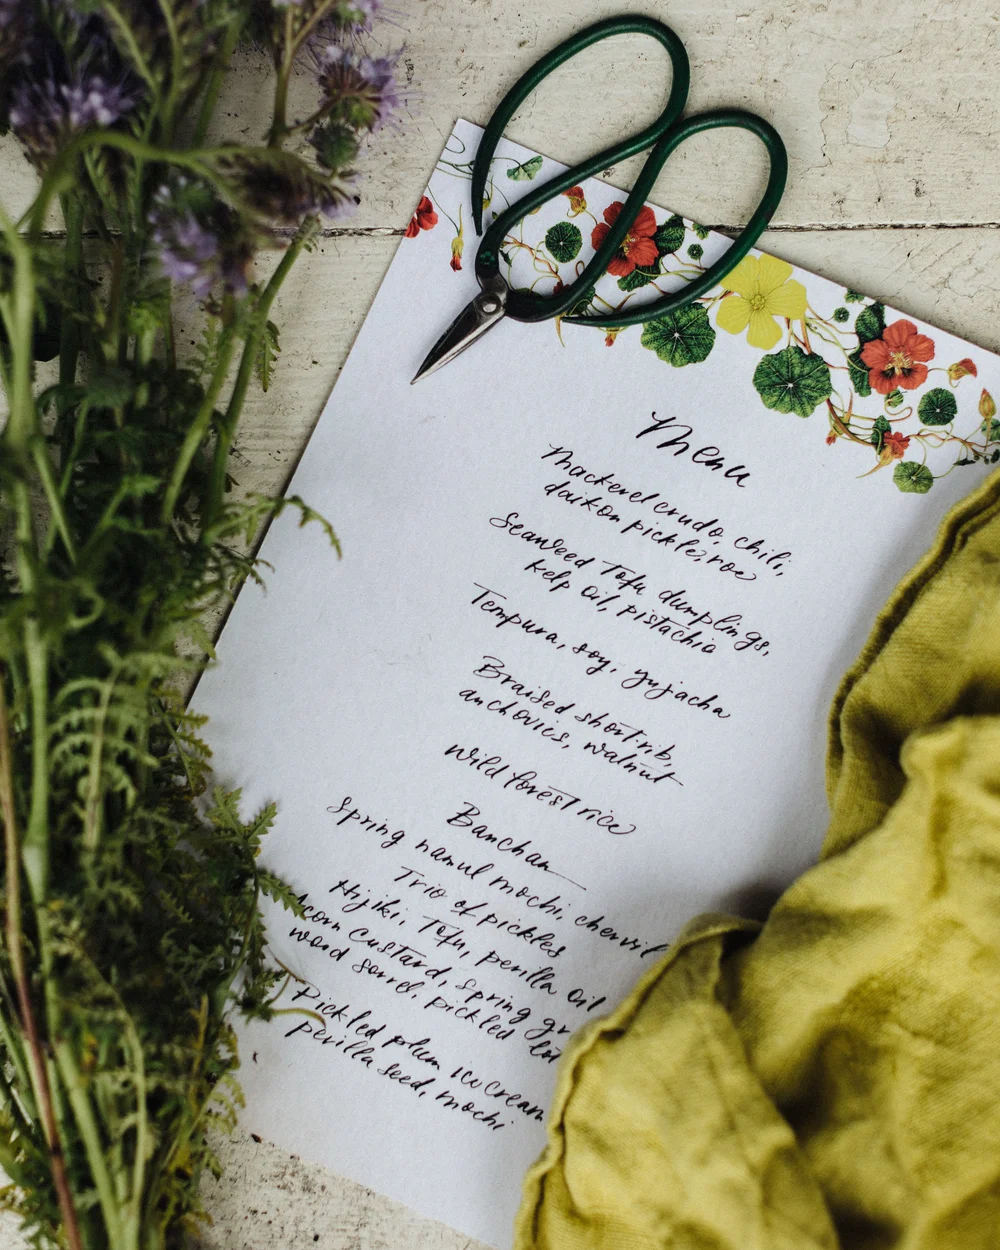 Menu
Mackerel crudo, chili,
daikon pickle, roe
Seaweed Tofu dumplings,
kelp oil, pistachio
Tempura, soy, yujacha
Braised short-rib,
anchovies, walnut
Wild forest rice
Banchan
Spring namul mochi, chervil
Trio of pickles
Hijiki, Tofu, perilla oil
Acorn custard, spring
wood sorrel, pickled
Pickled plum ice cream
perilla seed, mochi